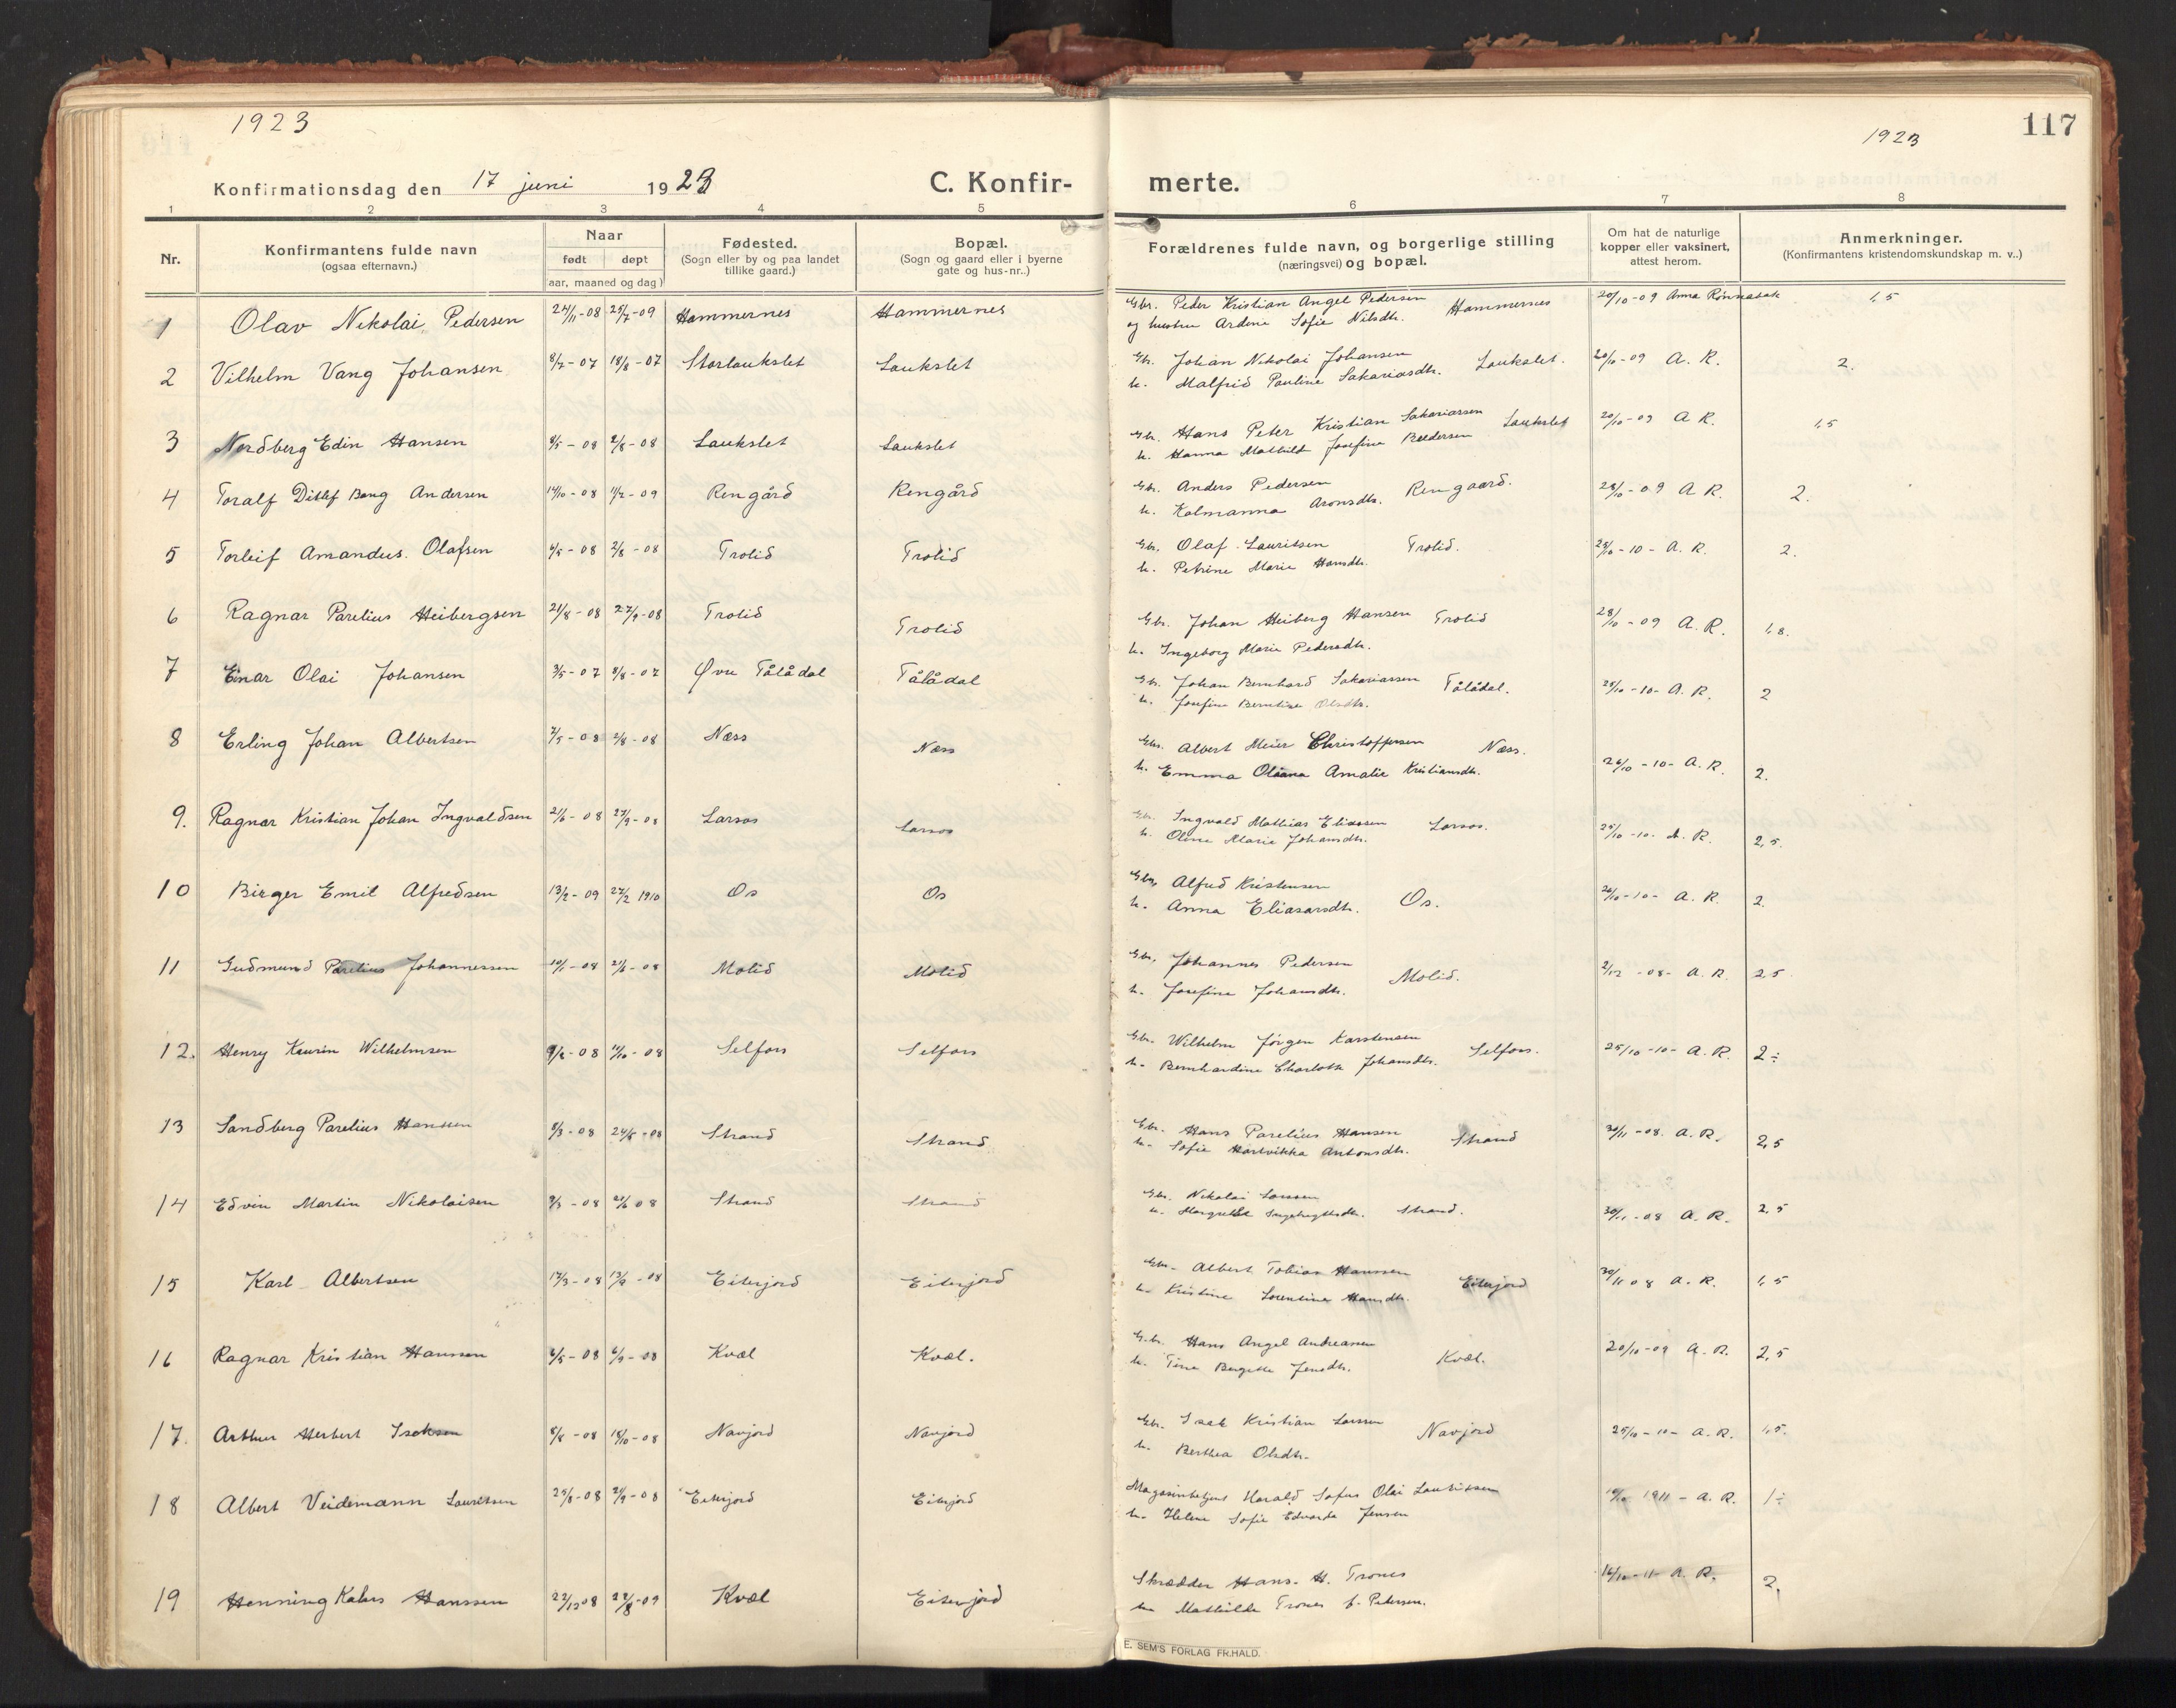 1923
1923
117
Konfirmationsdag den 17 juni 1923
C. Konfir-
merte.
1 2 3 4 5 6 7 8
Nr.
Konfirmantens fulde navn
(ogsaa efternavn.)
Naar
født døpt
(aar, maaned og dag)
Fødested.
(Sogn eller by og paa landet
tillike gaard.)
Bopæl.
(Sogn og gaard eller i byerne
gate og hus-nr..)
Forældrenes fulde navn, og borgerlige stilling
(næringsvei) og bopæl.
Om hat de naturlige
kopper eller vaksinert,
attest herom.
Anmerkninger.
(Konfirmantens kristendomskundskap m. v..)
1 Olav Nikolai Pedersen 24/11-08 25/7-09 Hammernes Hammernes
Gbr. Peder Kristian Angel Pedersen Hammernes 20/10-09 Anna 1,5
og hustru Ardine Sofie Nilsdtr.
2 Vilhelm Vang Johansen 8/7-07 18/8-07 Storlaukslet Laukslet
Gbr. Johan Nikolai Johansen Laukslet. 20/10-09 A. R. 2.
h. Malfrid Pauline Sakariasdtr.
3 Nordberg Edin Hansen 8/5-08 2/8-08 Laukslet Laukslet
Gbr. Hans Peter Kristian Sakariassen Laukslet 20/10-09 A R. 1,5
h. Hanna Mathilde Josefine
4 Toralf Ditlef Bang Andersen 14/10-08 11/2-09 Rengård Rengård
Gbr. Anders Pedersen Rengaard. 28/10-09 A R. 2.
h. Kolmanna Aronsdtr.
5 Torleif Amandus Olafsen 4/5-08 2/8-08 Trolid Trolid
Gbr. Olaf Lauritsen Trolid. 25/10-10- A. R. 2.
h. Petrine Marie Hansdtr.
6 Ragnar Parelius Heibergsen 21/8-08 27/9-08 Trolid Trolid
Gbr. Johan Heiberg Hansen Trolid 28/10-09 A. R. 1,8.
h. Ingeborg Marie Pedersdtr.
7 Einar Olai Johansen 3/5-07 8/8-07 Øvre Tålådal Tålådal
Gbr. Johan Bernhard Sakariassen Tålådal. 25/10-10- A. R. 2
h. Josefine Berntine Olsdtr.
8 Erling Johan Albertsen 7/5-08 2/8-08 Næss Næss
Gbr. Albert Meier Christoffersen Næss. 26/10-10- A. R. 2.
h. Emma Oliana Amalie Kristiansdtr.
9. Ragnar Kristian Johan Ingvaldsen 21/6-08 27/9-08 Larsos Larsos
Gbr. Ingvald Mathias Eliassen Larsos. 25/10-10- A. R. 2,5.
h. Oline Marie Johansdtr.
10 Birger Emil Alfredsen 13/2-09 27/2 1910 Os Os
Gbr. Alfred Kristensen Os. 26/10-10- A. R. 2.
h. Anna Eliasarsdtr.
11 Gudmund Parelius Johannessen 10/1-08 21/6-08 Molid Molid
Gbr. Johannes Pedersen Molid. 2/12-08- A. R. 2 5
h. Josefine Johansdtr.
12. Henry Kaurin Wilhelmsen 9/2-08 11/10-08 Selfors Selfors
Gbr. Wilhelm Jørgen Karstensen Selfors. 25/10-10- A. R. 2÷
h. Bernhardine Charlotte Johansdtr.
13 Sandberg Parelius Hansen 8/3-08 24/5-08 Strand Strand
Gbr. Hans Parelius Hansen Strand 30/11-08. A. R. 2,5
h. Sofie Hartvikka Antonsdtr.
14 Edvin Martin Nikolaisen 9/3-08 21/6 08 Strand Strand
Gbr. Nikolai Larssen Strand. 30/11-08 A. R. 2,5
h. Margrethe Ingebrigtsdtr.
15 Karl Albertsen 17/3-08 13/9-08 Eiterjord Eiterjord
Gbr. Albert Tobias Hanssen Eiterjord 30/11 08 A. R. 1,5
h. Kristine Lorentine Hansdtr.
16 Ragnar Kristian Hanssen 6/5-08 6/9-08 Kvæl Kvæl.
Gbr. Hans Angel Andreassen Kvæl. 20/10-09 A. R. 2,5
h. Tina Bergitte Jensdtr.
17. Arthur Herbert Isaksen 8/8-08 18/10-08 Navjord Navjord
Gbr. Isak Kristian Larssen Navjord 25/10-10- A. R. 1,5.
h. Berthea Olsdtr.
18 Albert Veidemann Lauritsen 25/8-08 21/9-08 Eiterjord Eiterjord
Magasinbetjent Harald Sofus Olai Lauritssen 19/10 1911- A. R. 1÷
h. Helene Sofie Edvarda Jensen
19 Henning Kalers Hanssen 22/12 08 22/8-09 Kvæl Eiterjord
Skrædder Hans. H. Trones 16/10-11- A. R. 2,
h. Mathilde Trones f. Petersen.
E. SEM'S FORLAG FR.HALD.